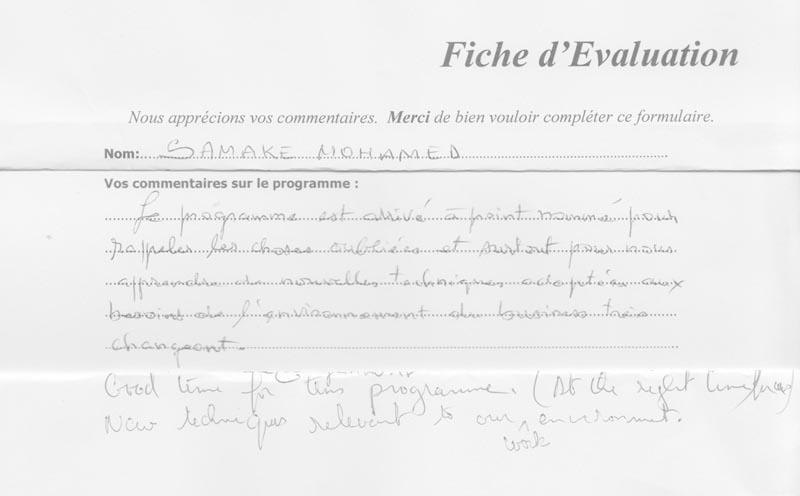 Fiche d'Evaluation
Nous apprécions vos commentaires. Merci de bien vouloir compléter ce formulaire.
Nom: SAMAKE MOHAMED
Vos commentaires sur le programme :
Le programme est arrivé à point nommé pour
rappeler les choses oubliées et surtout pour nous
apprendre de nouvelles techniques adaptées aux
besoins de l'environnement du business très
changeant.
Good time for this programme. (At the right time
New techniques relevant to our work environment.